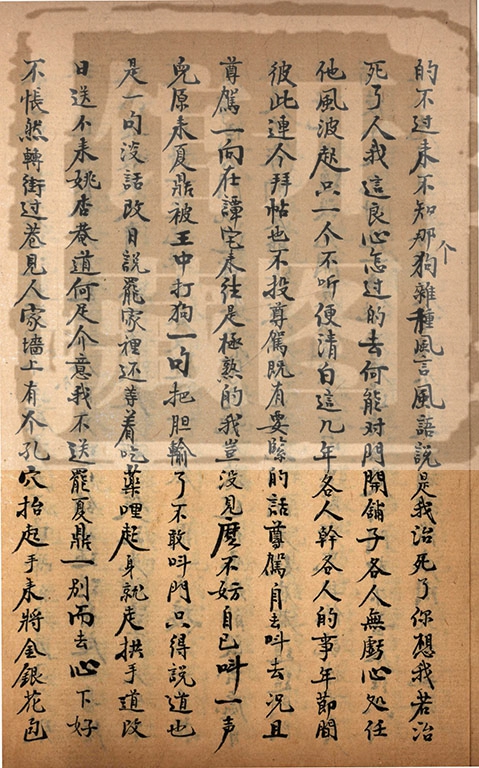 的不过来不知那个狗雜種风言风語説是我治死了你想我若治
死了人我這良心怎过的去何能对門開舖子各人無虧心处任
他風波起只一个不听便清白這几年各人幹各人的事年節間
彼此連个拜帖也不投尊駕既有要𦂳的話尊駕自去叫去况且
尊駕一向在譚宅来往是極熟的我豈没見麽不妨自己叫一声
兒原来夏鼎被王中打狗一句把胆輸了不敢叫門只得説道也
是一句没話改日說罷家裡还等着吃薬哩起身就走拱手道改
日送不来姚杏菴道何足介意我不送罷夏鼎一别而去心下好
不悵然轉街过巷見人家墻上有个孔穴抬起手来將金銀花包